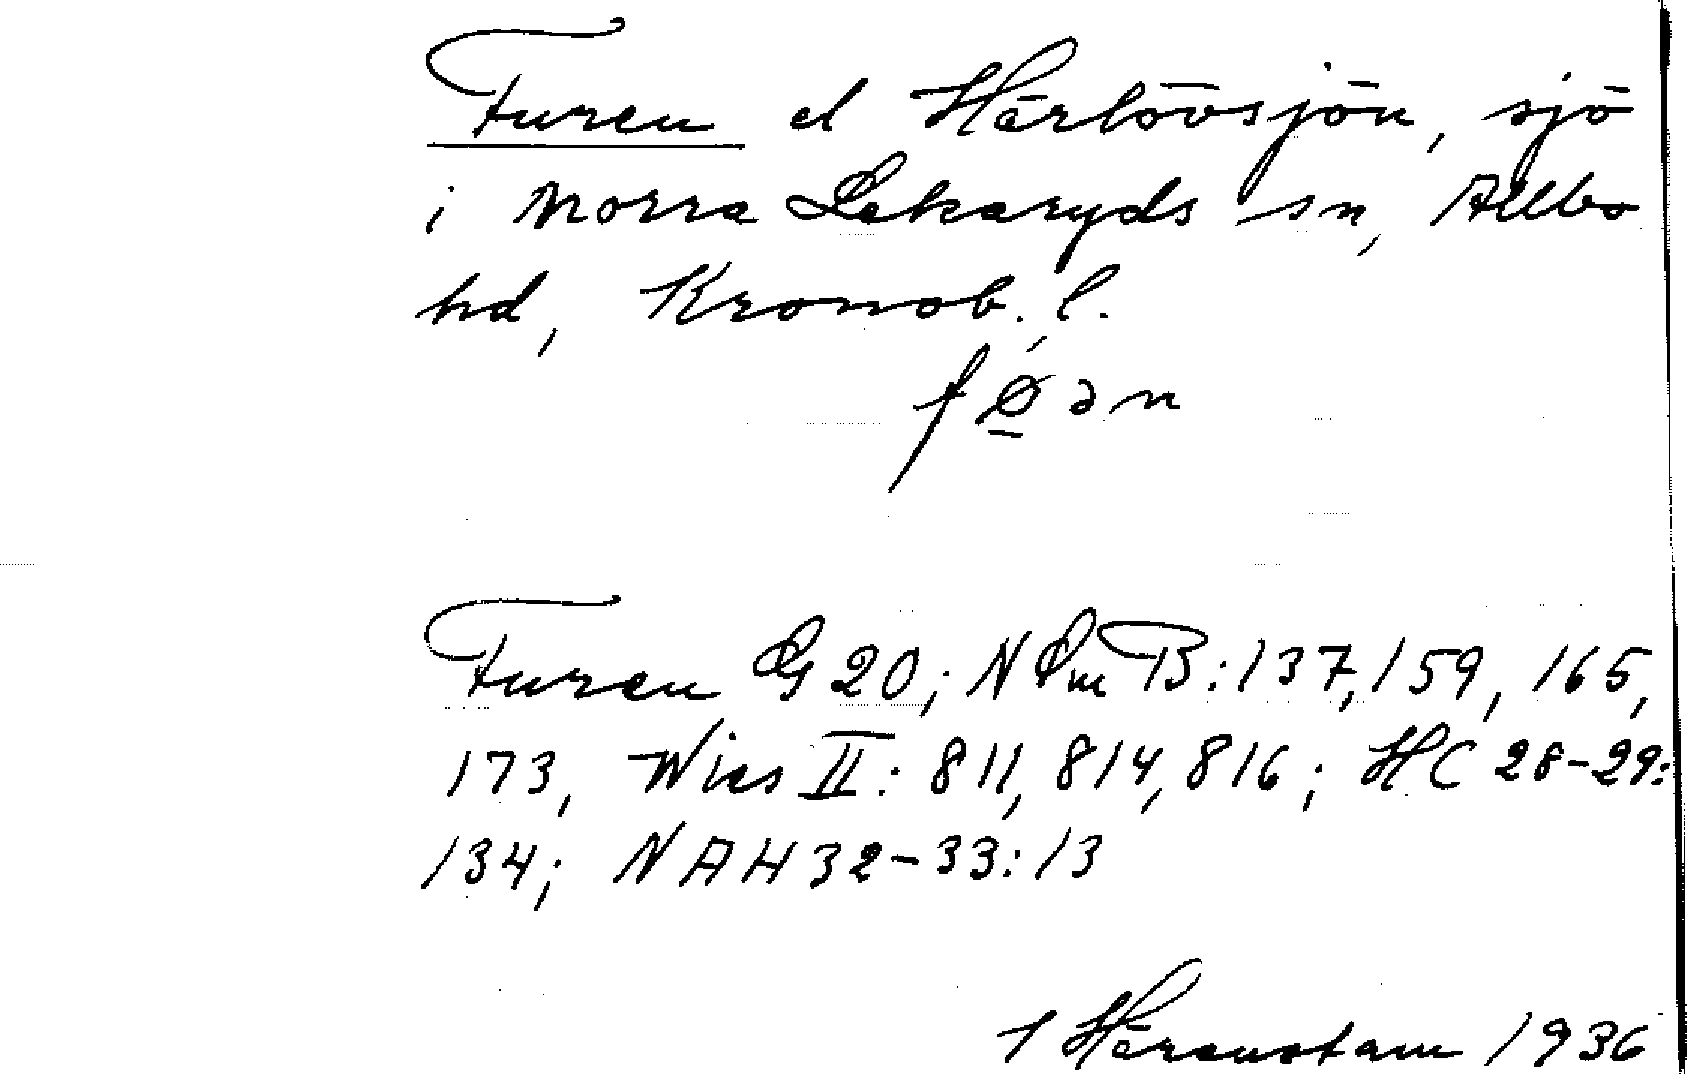 Furen el Härlövsjön, sjö
i Norra Lekaryds sn, Allbo
hd, Kronob. l.
Furen G 20; N Sm B: 137, 159, 165,
173, Wies II: 811, 814, 816; HC 28-29:
134; NAH 32-33: 13
Härenstam 1936